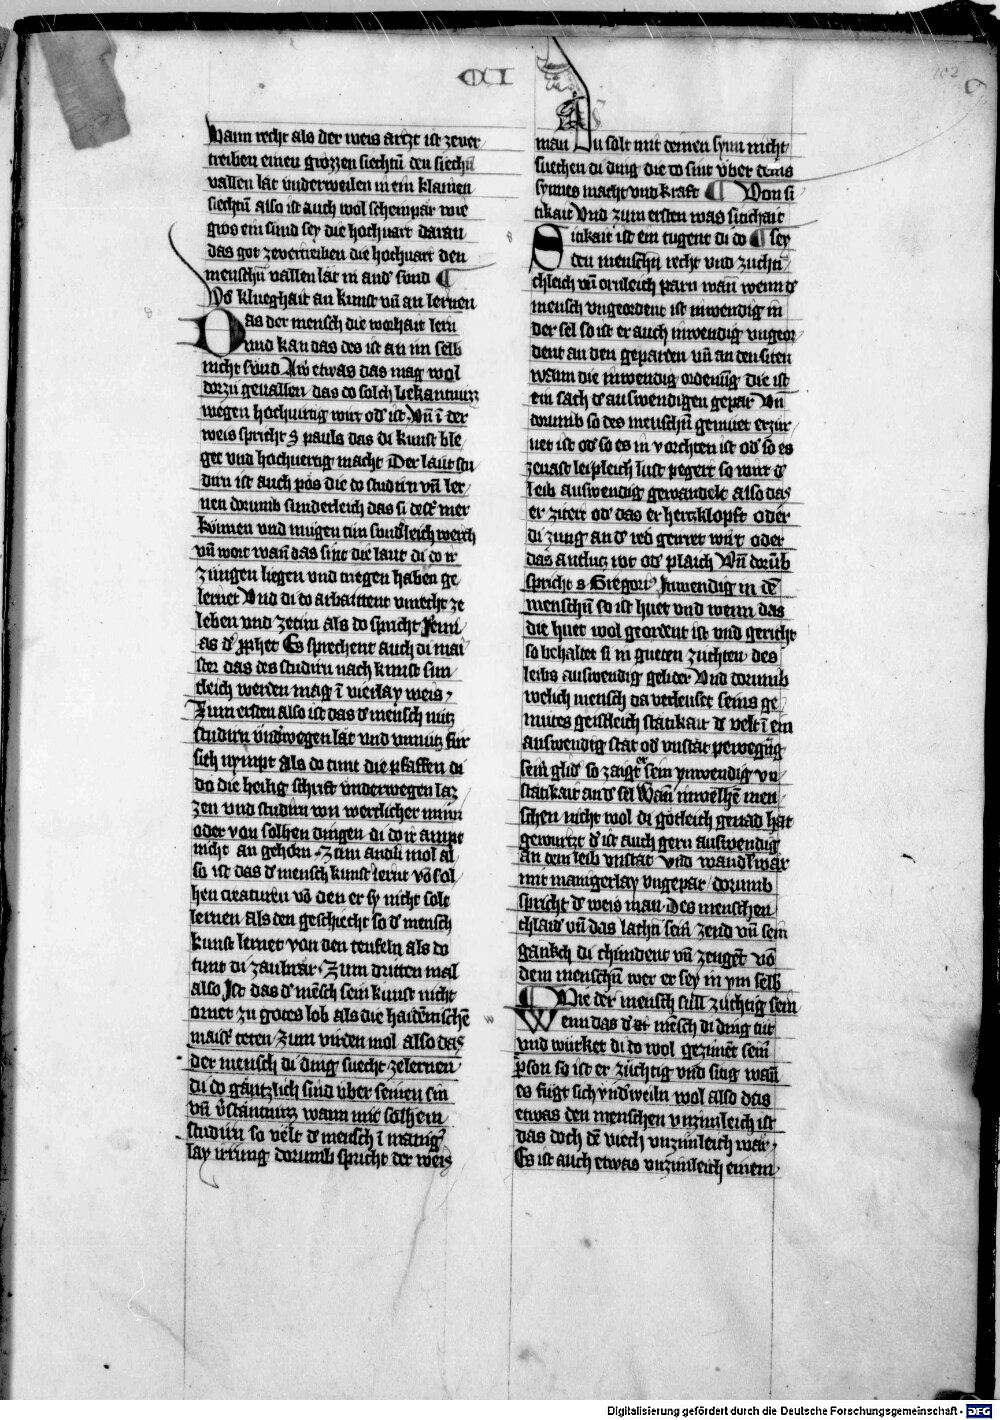 CI
102
wann recht als der weis artzt ist zever
treiben einen grozzen siechtū den siechn̄
vallen lat vnderweilen in ein klainen
siechtū also ist auch wol schempar wie
gros ein sünd sey die hochuart daran
das got zevertreiben die hochuart den
menschn̄ vallen lat in and' sünd ¶
Vō klueghait an kunst vn̄ an lernen
Das der mensch die warhait lern
vnd kan das des ist an im selb
nicht sünd Aw etwas das mag wol
dorzu geuallen das do solch bekantnuzz
wegen hochuertig wirt od' ist Vn̄ ī der
weis spricht S pauls das di kunst ble
get vnd hochuertig macht Der laüt stu
dirn ist auch pös die do studirn vn̄ ler
nen dorumb sunderleich das si dest' mer
können vnd mügen tün sünd'leich werch
vn̄ wort wan̄ das sint die laüt di do ir
züngen liegen vnd triegen haben ge
lernet Vnd di do arbaittent vnrecht ze
leben vnd zetün als do spricht Jeremi
as d' p̄phet Es sprechent auch di mai
ster das des studirn nach kunst sün
tleich werden mag ī vierlay weis
Zum ersten also ist das d' mensch nütz
studirn vnd'wegen lat vnd vnnütz für
sich nympt als do tünt die pfaffen di
do die heilig schrift vnderwegen laz
zen vnd studirn von wertlicher minn
oder von solhen dingen di do ir ampt
nicht an gehörn Zum andn̄ mol al
so ist das d' mensch kunst lernt vō sol
hen creaturen vō den er sy nicht solt
lernen als den geschiecht so d' mensch
kunst lernet von den teufeln als do
tunt di zaubrär Zum dritten mal
also Ist das d' mēsch sein kunst nicht
ornet zu gotes lob als die haidēnischē
maist' teten Zum virden mol also das
der mensch di ding suecht zelernen
di do gäntzlich sind über seinen sin
vn̄ v'stäntnuzz wann mit solhem
studirn so velt d' mensch ī manig'
lay irrung dorumb spricht der weis
man Du solt mit deinen synn nicht
suechen di ding die do sint vber deins
synnes macht vnd kraft ¶ Von si
tikait Vnd zum ersten was sitichait
Sitikait ist ein tugent di do ¶ sey
den menschn̄ recht vnd züchti
chleich vn̄ ornleich parn wan̄ wenn d'
mensch vngeordent ist inwendig in
der sel so ist er auch inwendig vngeor
dent an den geparden vn̄ an den siten
wann die inwendig ordenūg die ist
ein sach d' auswendigen gepar Vn̄
dorumb so des menschn̄ gemuet erzür
net ist od' so es in vorchten ist od' so es
zenast leipleich lust pegert so wirt d'
leib auswendig gewandelt also das
er zitert od' das er hertzklopft oder
di zung an d' red geirret wirt oder
das antlutz rot od' plaich Vn̄ dorūb
spricht s Gregori' Inwendig in dē
menschn̄ so ist huet vnd wenn das
die huet wol geordent ist vnd gericht
so behaltet si in gueten züchten des
leibs auswendig gelider Vnd dorumb
welich mensch da verleuset seins ge
mütes geistleich stätikait d' velt ī ein
auswendig stat od' vnstat pewegūg
seīn glid' so zaigt er sein ynwendig vn
stätikait an d' sel Wan̄ inwelhē men
schen nicht wol di götleich genad hat
gewurtzt d' ist auch gern auswendig
an dem leib vnstät vnd wandl'wär
mit manigerlay vngepar dorumb
spricht d' weis man Des menschen
chlaid' vn̄ das lachn̄ sein̄ zend vn̄ sein
gankch di chündent vn̄ zeugēt vō
dem menschn̄ wer er sey in ym selb
¶ Wie der mensch süll züchtig sein
Wenn das d' mēsch di ding tüt
vnd würket di do wol gezimēt sein̄
p̄son so ist er züchtig vnd sitig wan̄
es fügt sich vnd'weiln wol also das
etwas den menschen vnzimleich ist
das doch dē viech vnzimleich wär
Es ist auch etwas vnzimleich einem
Digitalisierung gefördert durch die Deutsche Forschungsgemeinschaft - DFG